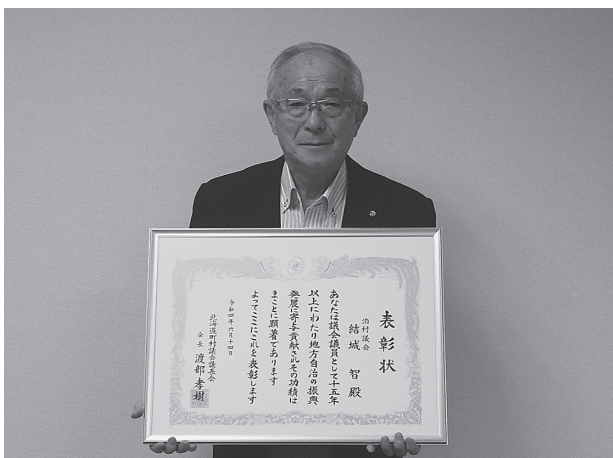 表彰状
泊村議会
結城智殿
あなたは議会議員として十五年
以上にわたり地方自治の振興
発展に寄与貢献されその功績は
まことに顕著であります
よってここにこれを表彰します
令和四年六月十四日
北海道町村議会議長会
会長 渡部孝樹